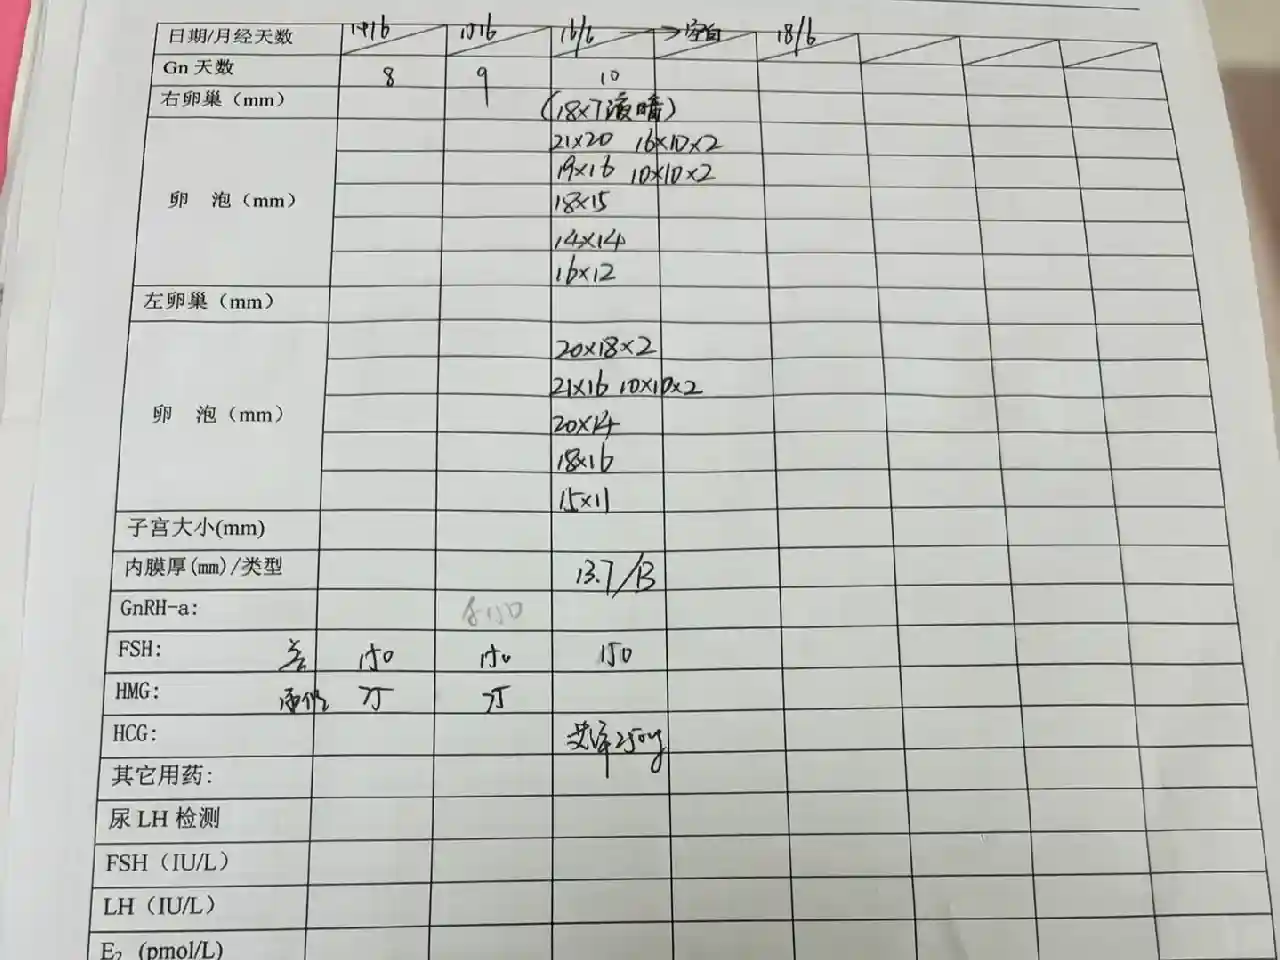 日期/月经天数 14/6 15/6 16/6 → 空白 18/6
Gn 天数 8 9 10
右卵巢（mm） (18×7液暗)
21×20 16×10×2
19×16 10×10×2
卵 泡（mm） 18×15
14×14
16×12
左卵巢（mm）
20×18×2
21×16 10×10×2
卵 泡（mm） 20×14
18×16
15×11
子宫大小(mm)
内膜厚(mm)/类型 13.7/B
GnRH-a:
FSH: 150 150 150
HMG: 75 75
HCG: 艾泽250ug
其它用药:
尿 LH 检测
FSH（IU/L）
LH（IU/L）
E₂ (pmol/L)